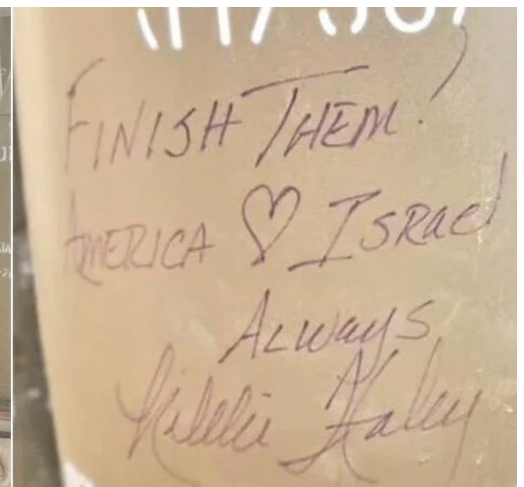 FINISH THEM!
AMERICA ♡ ISRAEL
ALWAYS
Nikki Haley